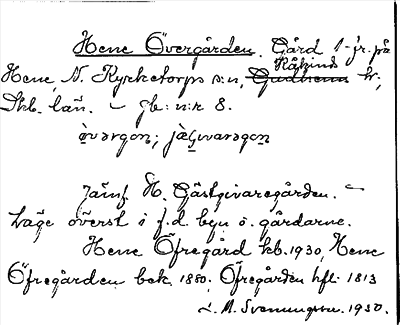 Hene Övergården. Gård 1-jr. på
Kåkinds
Hene, N. Kyrketorps s:n, Gudhems hd;
Skb. län. – jb: n:r 8.
Jämf. H. Gästgivaregården. –
Läge överst i f.d. byn ö. gårdarne.
Hene Öfregård kb. 1930, Hene
Öfregården bek. 1880. Öfregården hfl. 1813
L. M. Svenungsson. 1930.